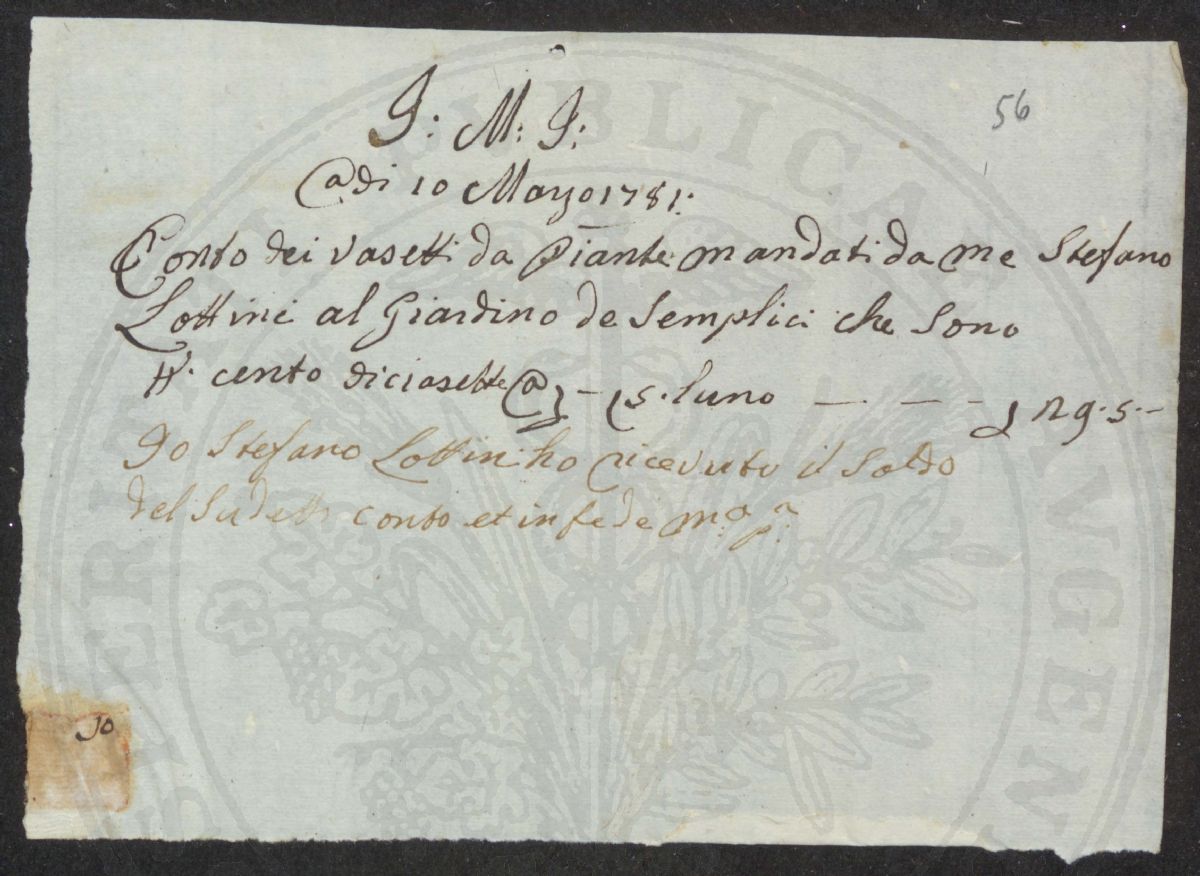 56
J: M: J:
Adi 10 Marzo 1781:
Conto dei vasetti da piante mandati da me Stefano
Lottini al Giardino de Semplici che sono
N. cento diciasette a £ – 5. luno — . — – £ 29. 5. –
Io Stefano Lottini ho ricevuto il saldo
del sudetto conto et in fede mº. pª.
10